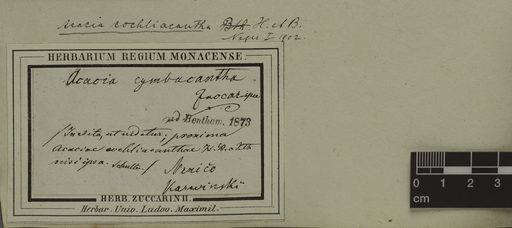 Acacia cochliacantha Bth. H. et B.
Negri I. 1902.
HERBARIUM REGIUM MONACENSE.
Acacia cymbacantha
Zuccar. ipse
vid Bentham. 1873
/ Inedita, ut videtur; proxima
Acaciae cochliacanthae H. B. et K.
nisi ipsa. Schulte. /
Mexico
Karwinski
HERB. ZUCCARINII.
Herbar. Univ. Ludov. Maximil.
cm 1 2 3